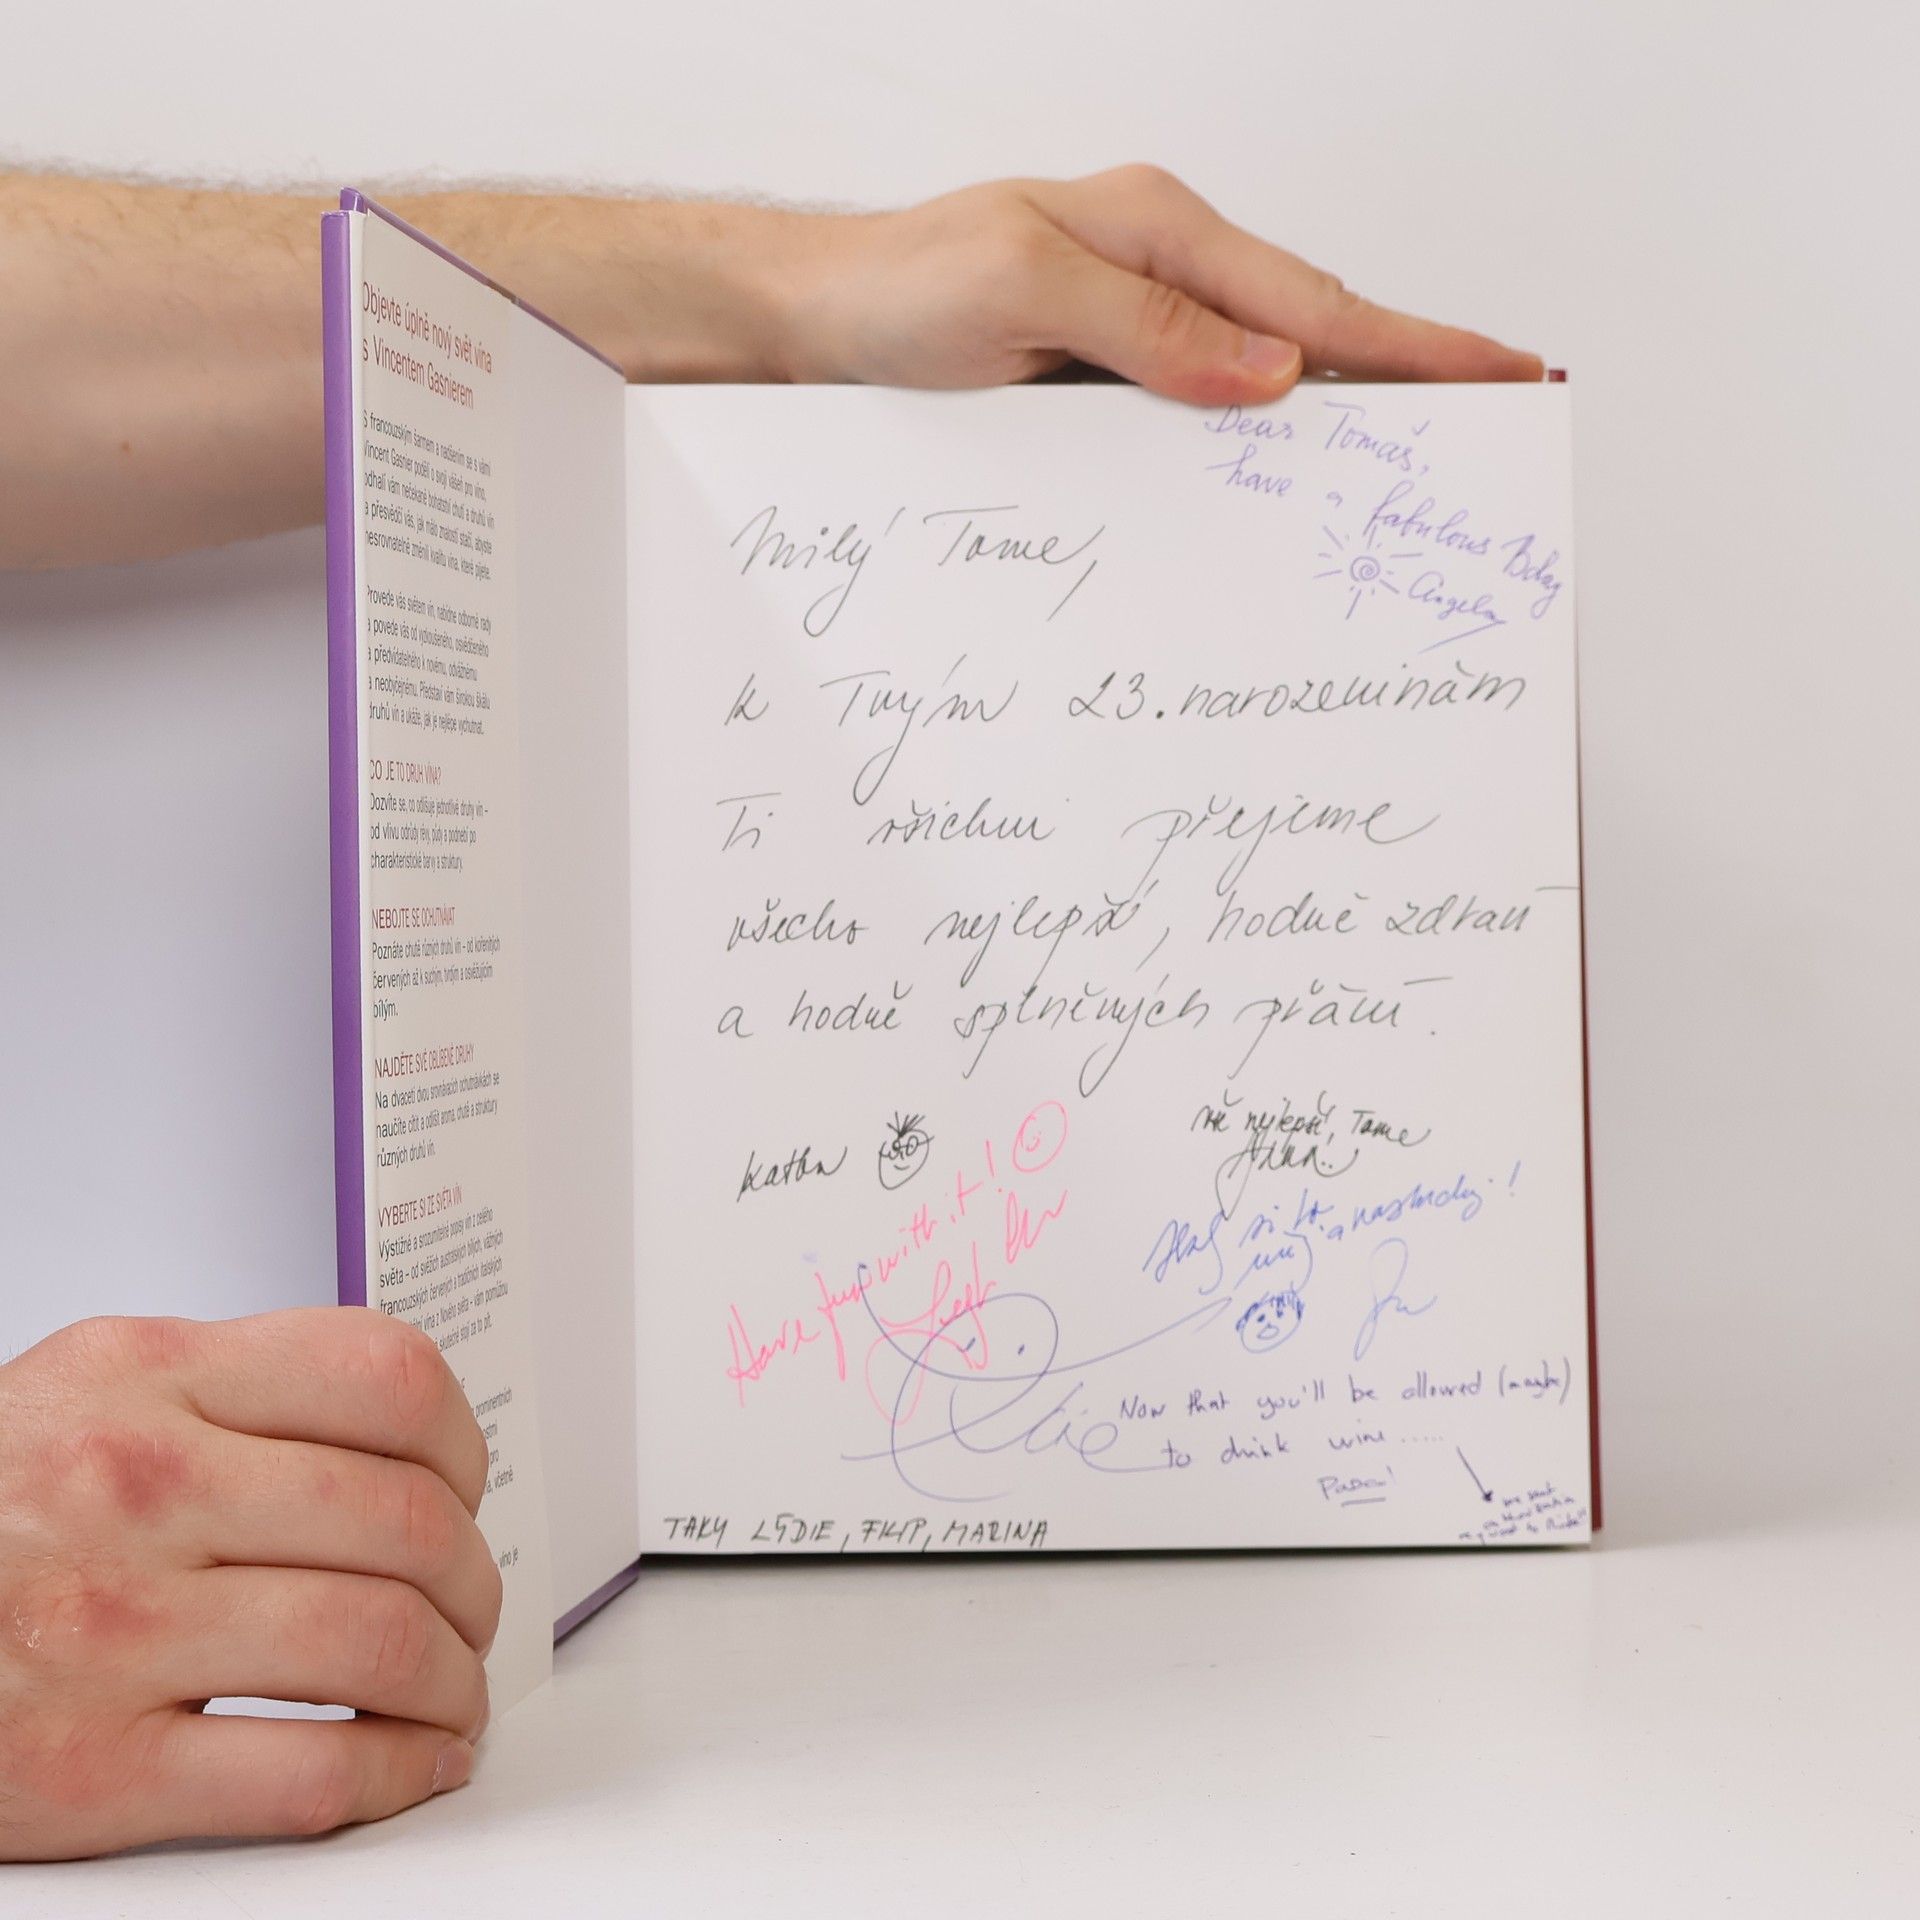 Objevte úplně nový svět vína
s Vincentem Gasnierem
S francouzským šarmem a nadšením se s vámi
Vincent Gasnier podělí o svoji vášeň pro víno,
odhalí vám nečekané bohatství chutí a druhů vín
a přesvědčí vás, jak málo znalostí stačí, abyste
nesrovnatelně změnili kvalitu vína, které pijete.
Provede vás světem vín, nabídne odborné rady
a povede vás od vyzkoušeného, osvědčeného
a předvídatelného k novému, odvážnému
a neobyčejnému. Představí vám širokou škálu
druhů vín a ukáže, jak je nejlépe vychutnat.
CO JE TO DRUH VÍNA?
Dozvíte se, co odlišuje jednotlivé druhy vín –
od vlivu odrůdy révy, půdy a podnebí po
charakteristické barvy a struktury.
NEBOJTE SE OCHUTNÁVAT
Poznáte chutě různých druhů vín – od kořenitých
červených až k suchým, tvrdým a osvěžujícím
bílým.
NAJDĚTE SVÉ OBLÍBENÉ DRUHY
Na dvaceti dvou srovnávacích ochutnávkách se
naučíte cítit a odlišit aroma, chutě a struktury
různých druhů vín.
VYBERTE SI ZE SVĚTA VÍN
Výstižné a srozumitelné popisy vín z celého
světa – od svěžích australských bílých, vážných
francouzských červených a tradičních italských
vína z Nového světa – vám pomůžou
skutečně stojí za to pít.
prominentních
pro
včetně
víno je
Dear Tomaš,
have a fabulous Bday
Angela
Milý Tome,
k Tvým 23. narozeninám
Ti všichni přejeme
všecho nejlepší, hodně zdraví
a hodně splněných přání.
Katka
vše nejlepší, Tome
Have fun with it!
si to a
Now that you'll be allowed (maybe)
to drink wine.....
Pascal
TAKY LÝDIE, FILIP, MARINA